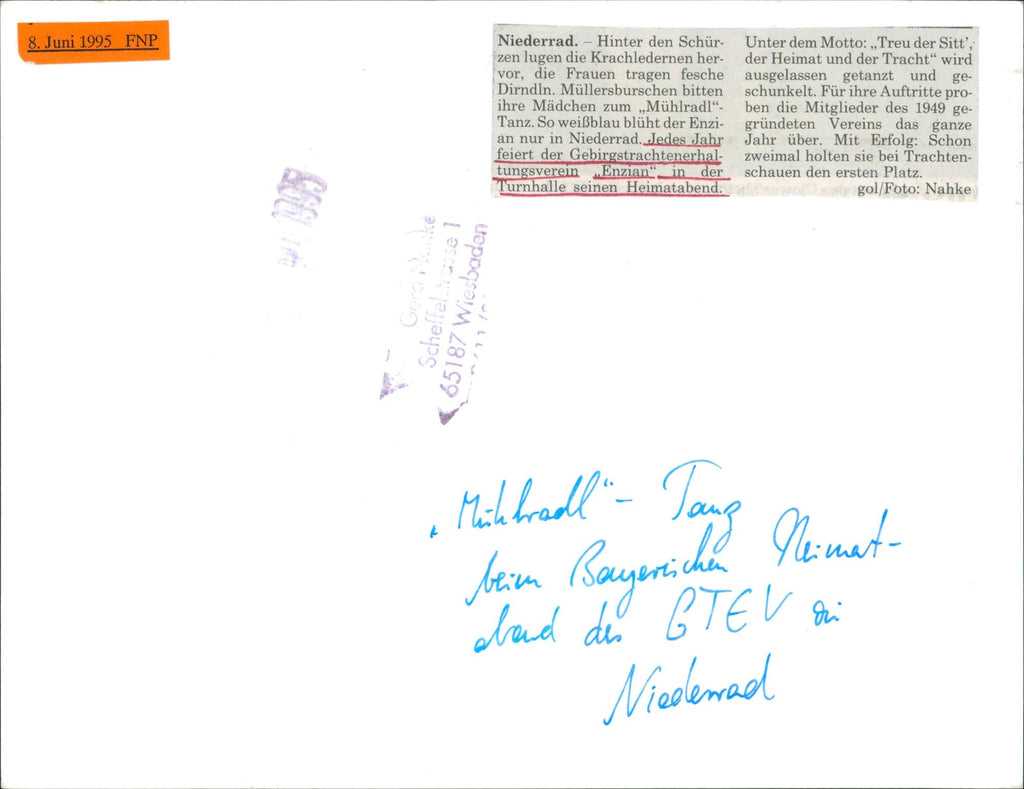 8. Juni 1995 FNP
Niederrad. – Hinter den Schür-
zen lugen die Krachledernen her-
vor, die Frauen tragen fesche
Dirndln. Müllersburschen bitten
ihre Mädchen zum „Mühlradl“-
Tanz. So weißblau blüht der Enzi-
an nur in Niederrad. Jedes Jahr
feiert der Gebirgstrachtenerhal-
tungsverein „Enzian“ in der
Turnhalle seinen Heimatabend.
Unter dem Motto: „Treu der Sitt’,
der Heimat und der Tracht“ wird
ausgelassen getanzt und ge-
schunkelt. Für ihre Auftritte pro-
ben die Mitglieder des 1949 ge-
gründeten Vereins das ganze
Jahr über. Mit Erfolg: Schon
zweimal holten sie bei Trachten-
schauen den ersten Platz.
gol/Foto: Nahke
1995
Scheffelstrasse 1
65187 Wiesbaden
„Mühlradl“ – Tanz
beim Bayerischen Heimat-
abend des GTEV in
Niederrad